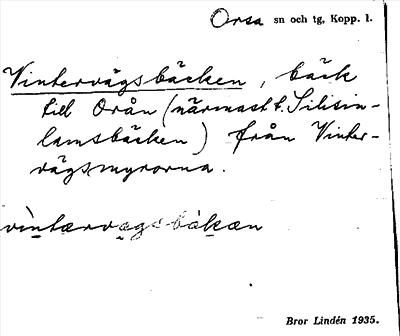 Orsa sn och tg, Kopp. l.
Vintervägsbäcken, bäck
till Orån (närmast t. Silisin-
lamsbäcken) från Vinter-
vägsmyrorna.
vìntærvægsbäkæn
Bror Lindén 1935.